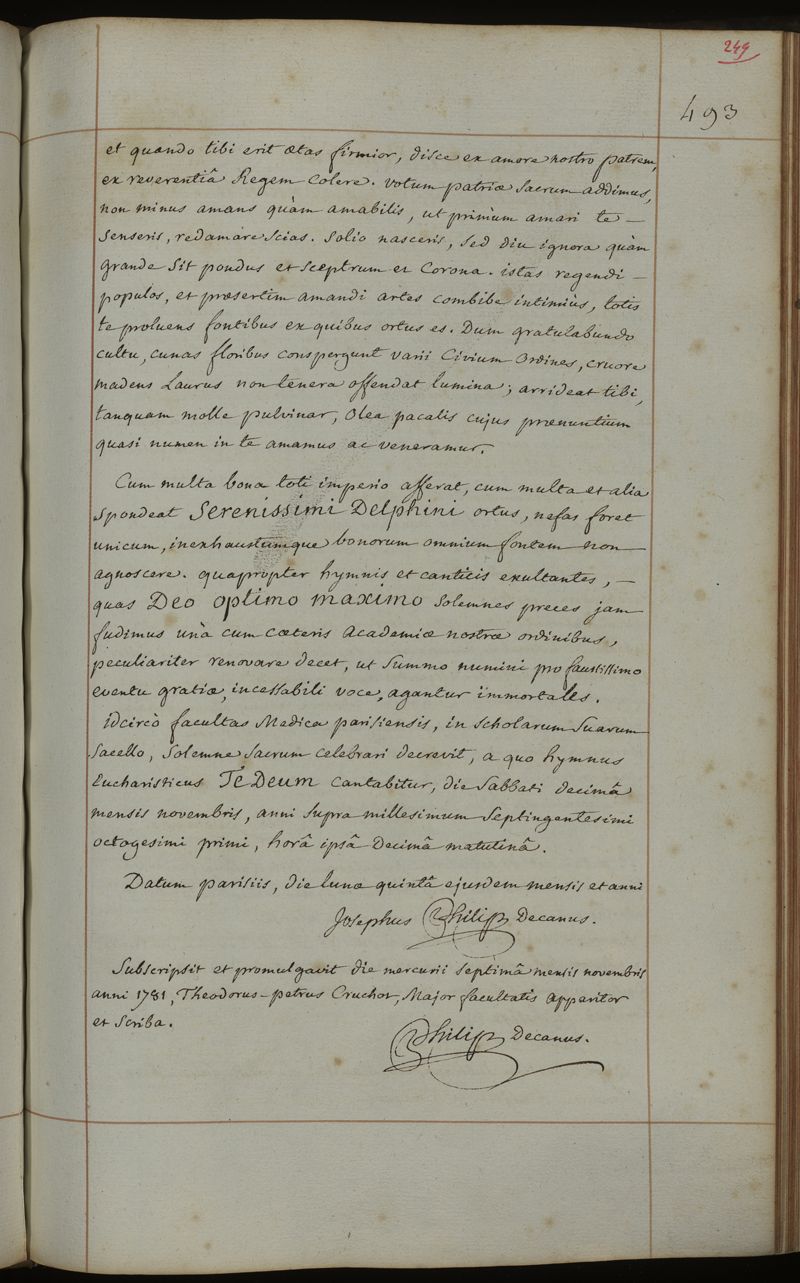 249
493
et quando tibi erit ætas firmior, disce ex amore nostro patrem,
ex reverentiâ Regem colere. votum patriæ sacrum addimus,
non minus amans quàm amabilis, ut primùm amari te —
senseris, redamare scias. solio nasceris, sed diu ignora quàm
grande sit pondus et sceptrum et corona. istas regendi —
populos, et præsertim amandi artes combibe intimiùs, totis
te proluens fontibus ex quibus ortus es. Dum gratulabundo
cultu, cunas floribus conspergunt varii Civium Ordines, cruore
madens Laurus non tenera offendat lumina; arrideat tibi,
tanquam molle pulvinar, olea pacalis cujus prænuntium
quasi numen in te amamus ac veneramur.
Cum multa bona toti imperio afferat, cum multa et alia
spondeat Serenissimi Delphini ortus, nefas foret
unicum, inexhaustumque bonorum omnium fontem non —
agnoscere. quapropter hymnis et canticis exultantes, —
quas Deo optimo maximo solemnes preces jam
fudimus unà cum cæteris Academiæ nostræ ordinibus,
peculiariter renovare decet, ut summo numini pro faustissimo
eventu gratiæ, incessabili voce, agantur immortales.
idcircò facultas Medica parisiensis, in scholarum suarum
sacello, solemne sacrum celebrari decrevit, a quo hymnus
Eucharisticus Te Deum cantabitur, die sabbati decimâ
mensis novembris, anni supra millesimum septingentesimi
octogesimi primi, horâ ipsâ Decimâ matutinâ.
Datum parisiis, die lunæ quintâ ejusdem mensis et anni
Josephus Philip Decanus.
Subscripsit et promulgavit die mercurii septimâ mensis novembris
anni 1781, Theodorus-petrus Cruchot, Major facultatis apparitor
et scriba.
Philip Decanus.